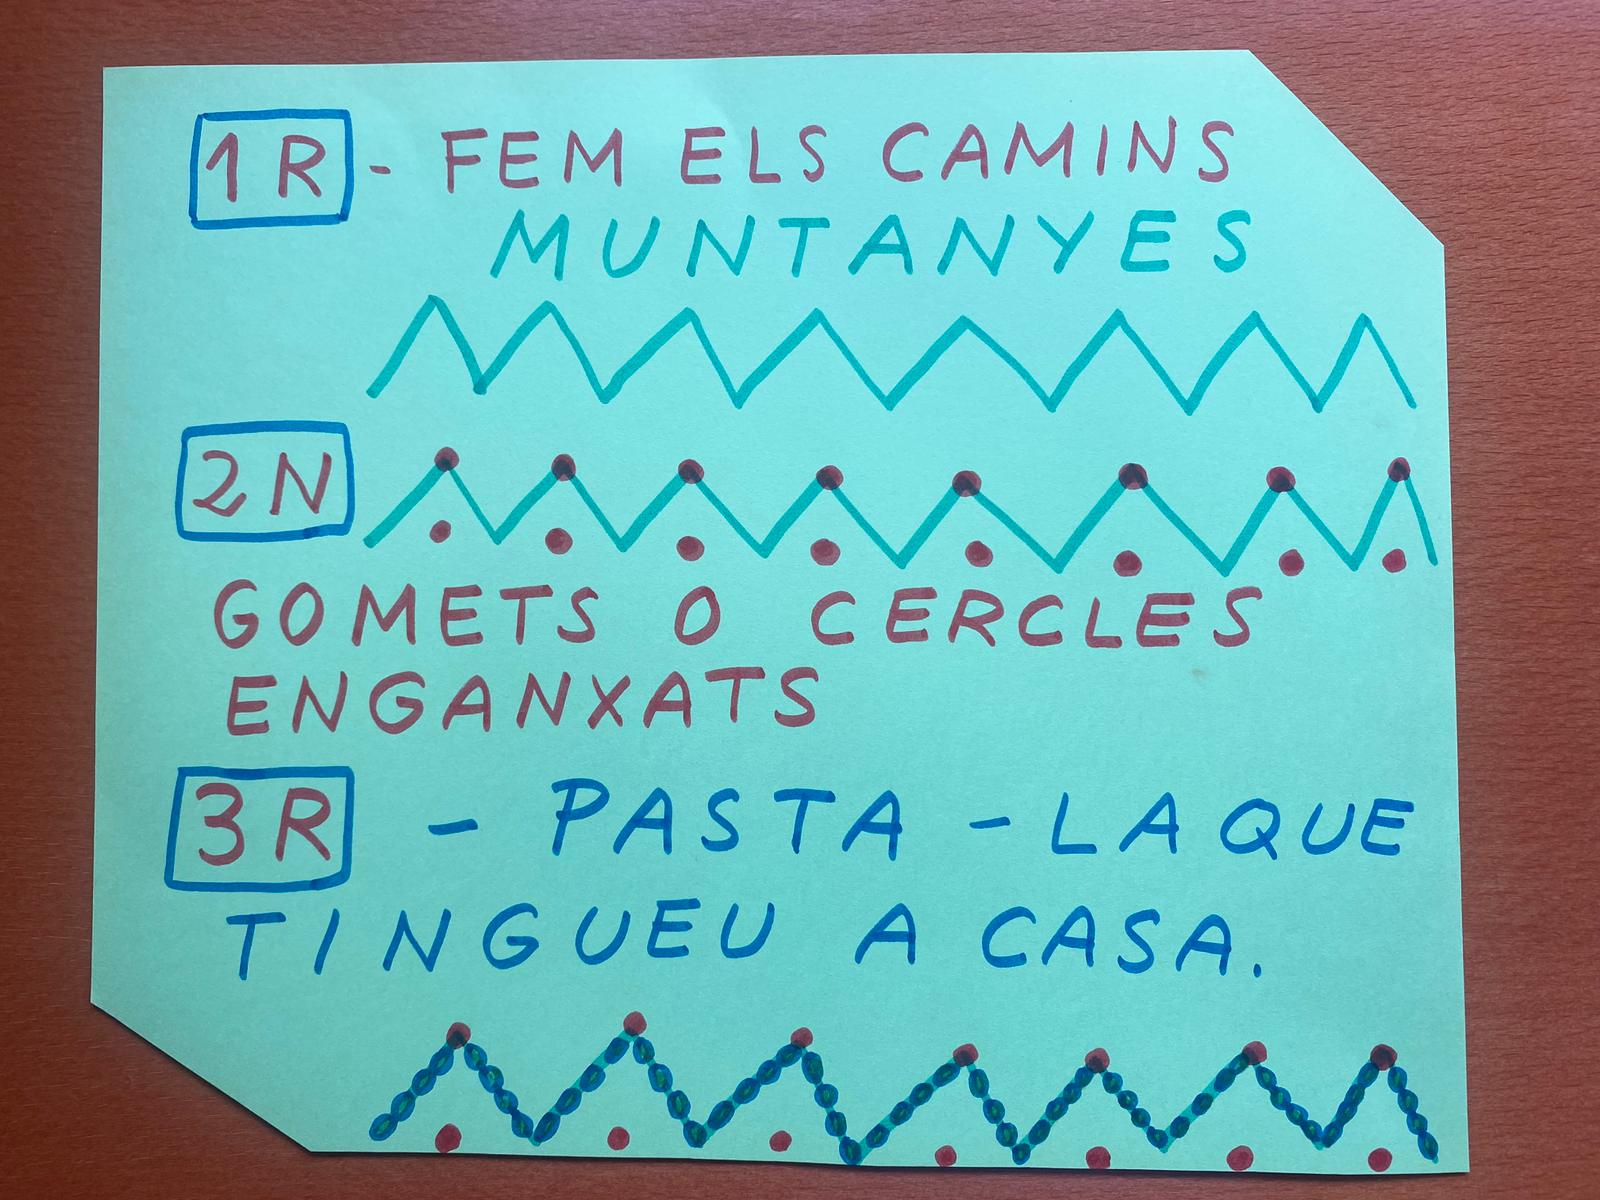 1R - FEM ELS CAMINS
MUNTANYES
2N
GOMETS O CERCLES
ENGANXATS
3R - PASTA - LA QUE
TINGUEU A CASA.